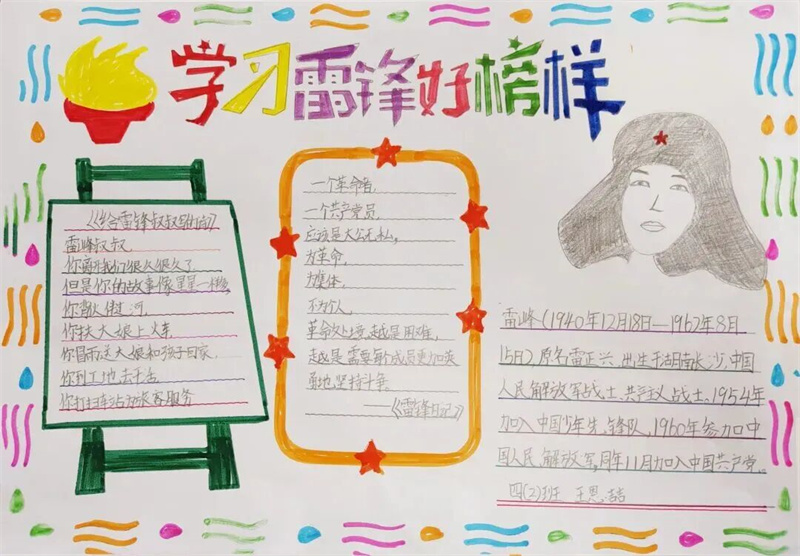 学习雷锋好榜样
《给雷锋叔叔的信》
雷锋叔叔
你离开我们很久很久了
但是你的故事像星星一样
你背人过河
你扶大娘上火车
你冒雨送大娘和孩子回家
你到工地去干活
你打扫车站为旅客服务
一个革命者,
一个共产党员,
应该是大公无私,
为革命,
为集体,
不为个人,
革命处境越是困难,
越是需要每个成员更加英
勇地坚持斗争
——《雷锋日记》
雷峰(1940年12月18日—1962年8月
15日)原名雷正兴,出生于湖南长沙,中国
人民解放军战士、共产主义战士、1954年
加入中国少年先锋队,1960年参加中
国人民解放军,同年11月加入中国共产党。
四(2)班 王思喆